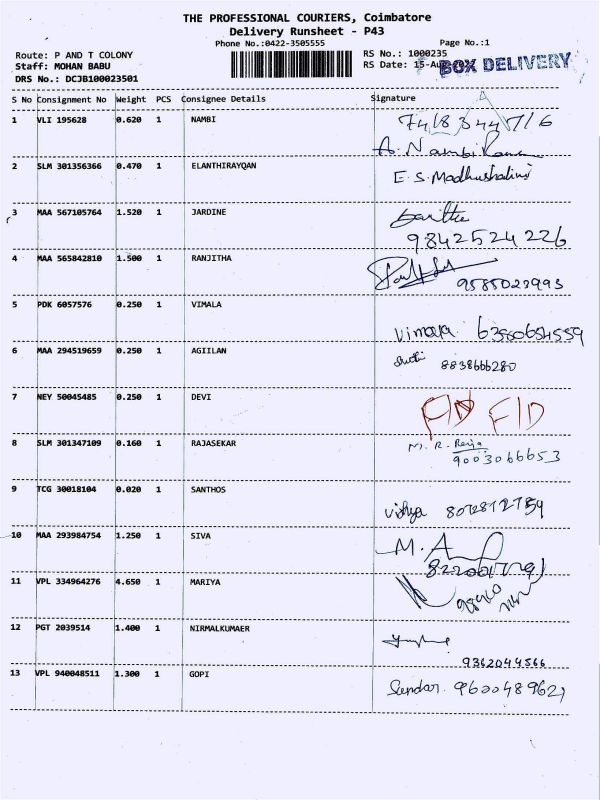 THE PROFESSIONAL COURIERS, Coimbatore
Delivery Runsheet - P43
Phone No.:0422-3505555
Page No.:1
Route: P AND T COLONY
RS No.: 1000235
Staff: MOHAN BABU
RS Date: 15-Au
BOX DELIVERY
DRS No.: DCJB100023501
S No Consignment No Weight PCS Consignee Details Signature
1 VLI 195628 0.620 1 NAMBI
2 SLM 301356366 0.470 1 ELANTHIRAYQAN E.S.Madhushalini
3 MAA 567105764 1.520 1 JARDINE
9842524226
4 MAA 565842810 1.500 1 RANJITHA
9585023993
5 PDK 6057576 0.250 1 VIMALA
6 MAA 294519659 0.250 1 AGIILAN
8838666280
7 NEY 50045485 0.250 1 DEVI
8 SLM 301347109 0.160 1 RAJASEKAR M. R. Raja
9003066653
9 TCG 30018104 0.020 1 SANTHOS
vidya
10 MAA 293984754 1.250 1 SIVA M.A
11 VPL 334964276 4.650 1 MARIYA
12 PGT 2039514 1.400 1 NIRMALKUMAER
9362044566
13 VPL 940048511 1.300 1 GOPI Sundar 9600489621